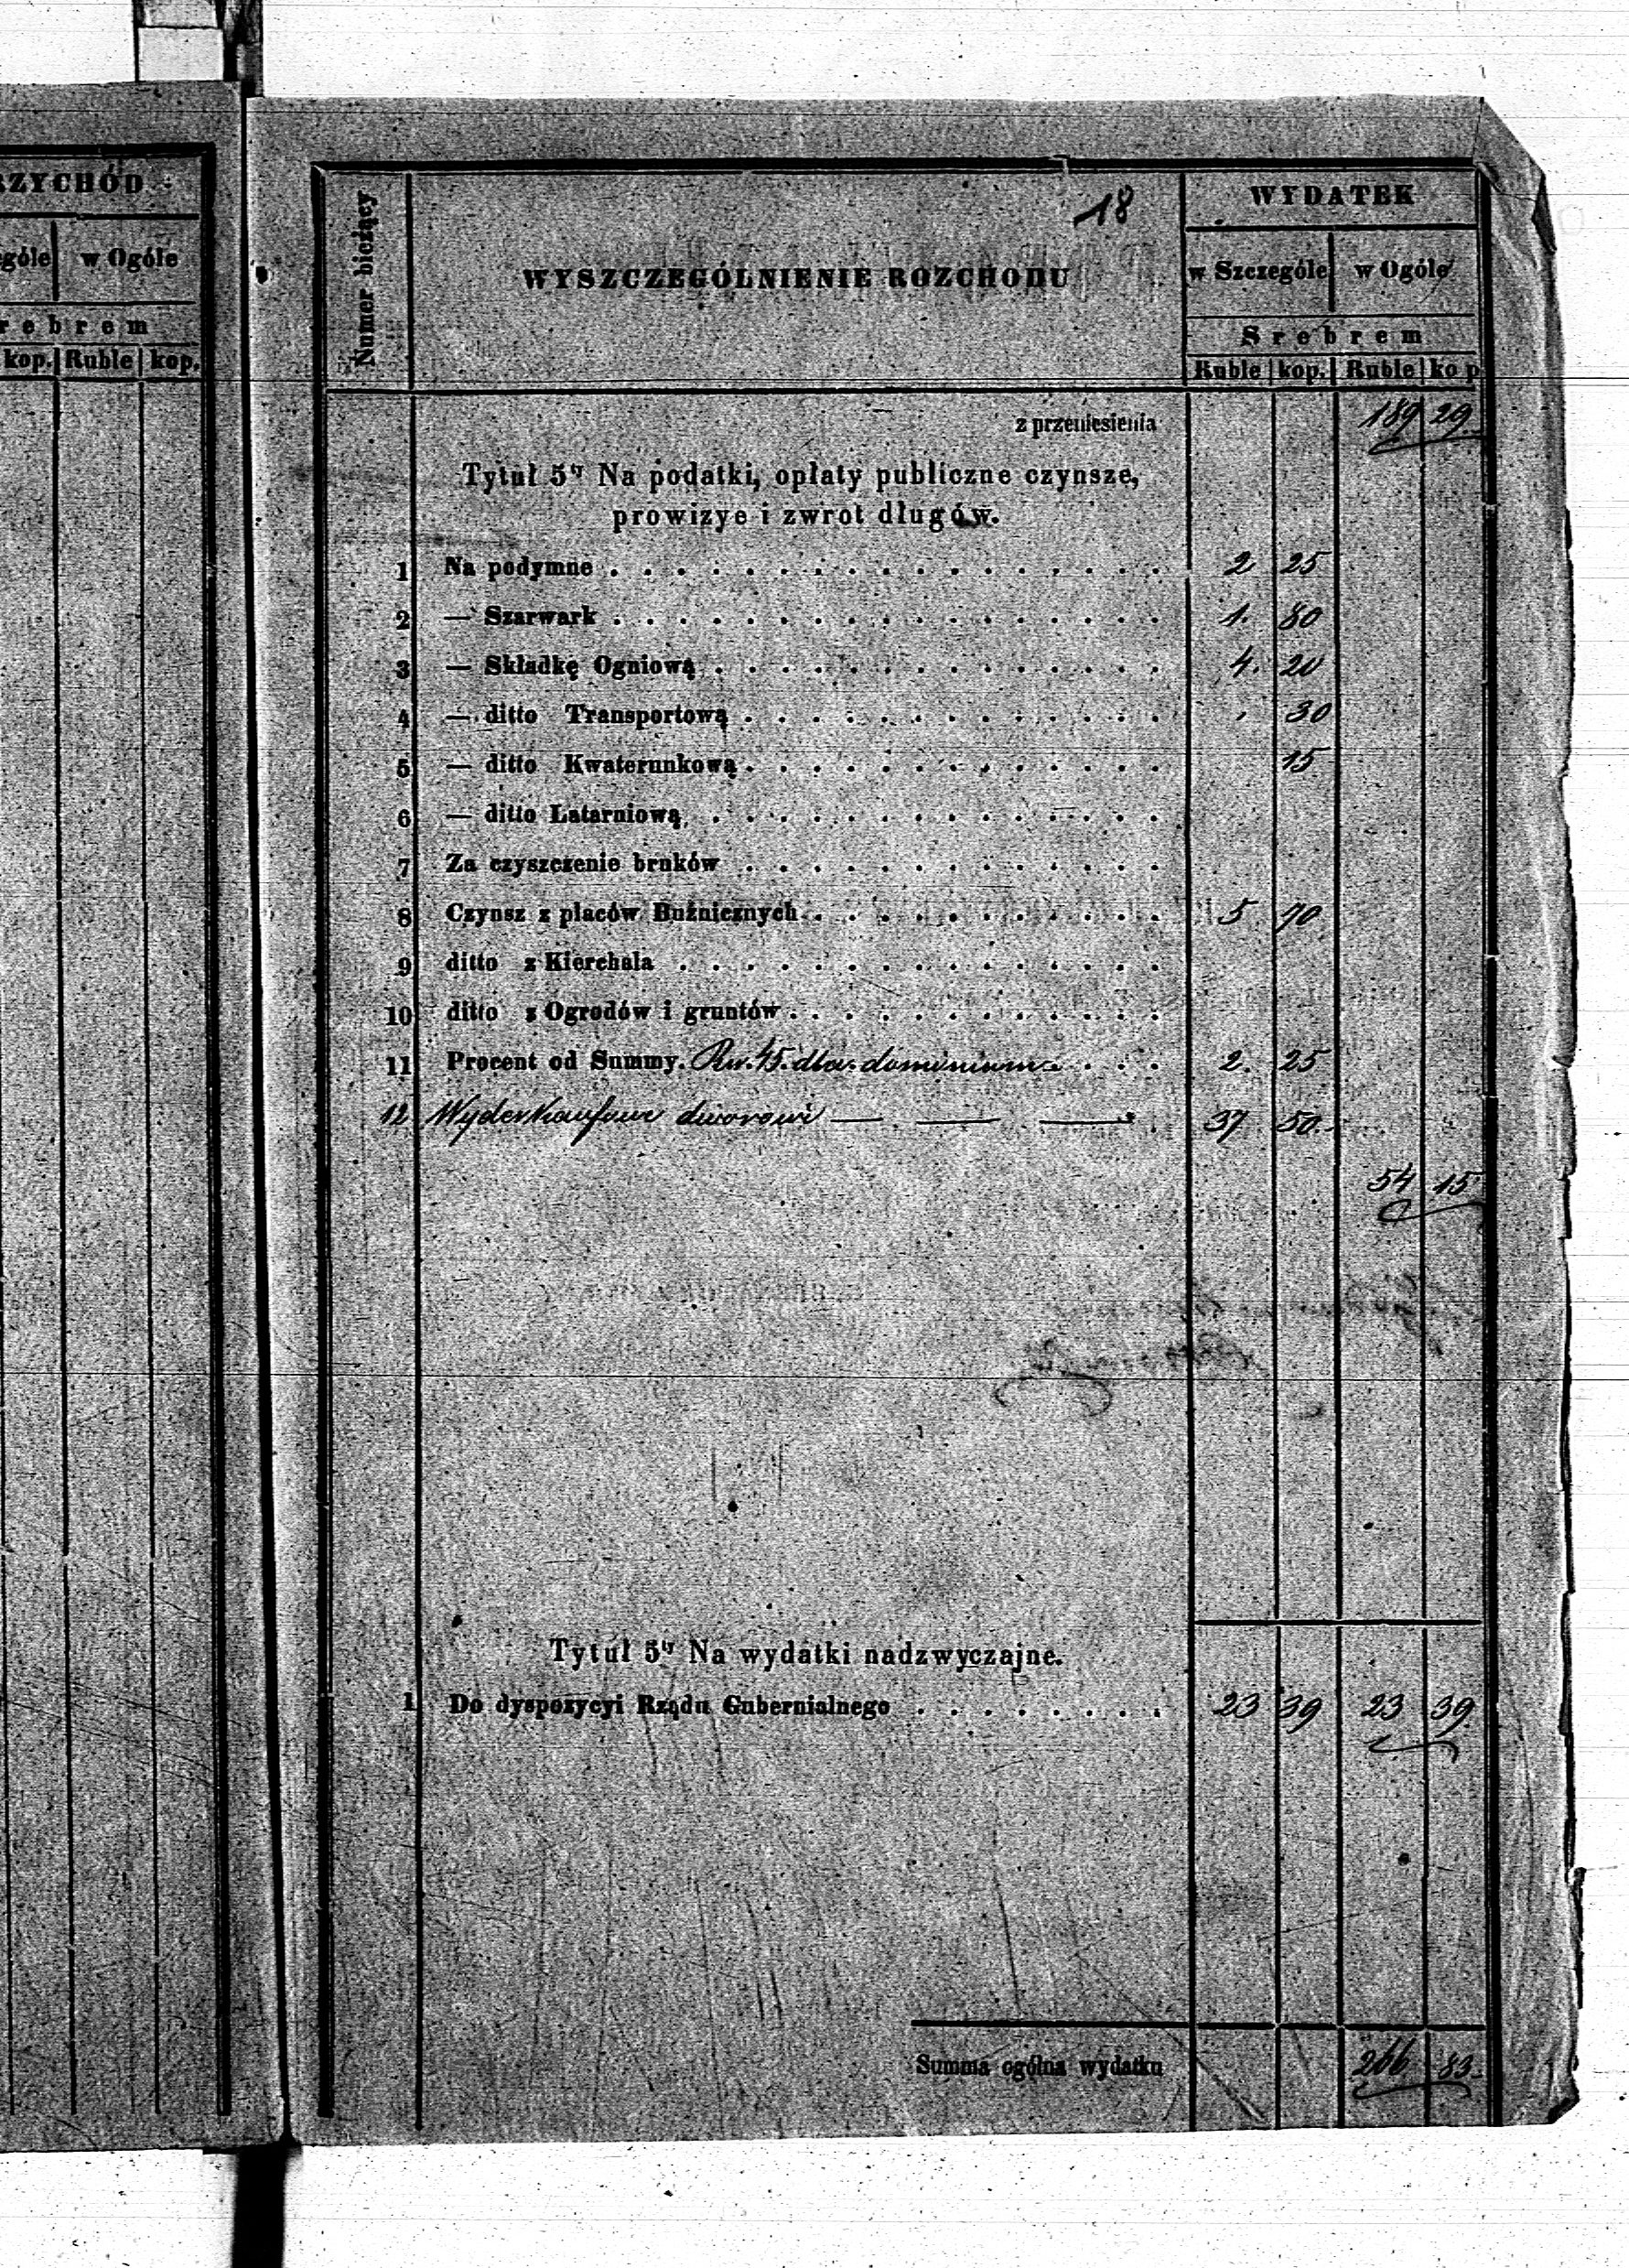 RZYCHÓD
góle w Ogóle
rebrem
kop. Ruble kop.
18
Numer bieżący
WYSZCZEGÓLNIENIE ROZCHODU
WYDATEK
w Szczególe w Ogóle
Srebrem
Ruble kop. Ruble kop
z przeniesienia 189 29
Tytuł 5ty Na podatki, opłaty publiczne czynsze,
prowizye i zwrot długów.
1 Na podymne . . . . . . . . . . . . . . . . . 2 25
2 — Szarwark . . . . . . . . . . . . . . . . . 1. 80
3 — Składkę Ogniową . . . . . . . . . . . . . . 4. 20
4 — ditto Transportową . . . . . . . . . . . . . 30
5 — ditto Kwaterunkową . . . . . . . . . . . . . 15
6 — ditto Latarniową . . . . . . . . . . . . . .
7 Za czyszczenie bruków . . . . . . . . . . . . .
8 Czynsz z placów Bużnicznych . . . . . . . . . . . 5 70
9 ditto z Kierchala . . . . . . . . . . . . . . .
10 ditto z Ogrodów i gruntów . . . . . . . . . . . .
11 Procent od Summy. Rs. 45. dla dominium . . . . 2. 25
12 Wyderkaufowe dworowi — — — 37 50.
54 15
Tytuł 5ty Na wydatki nadzwyczajne.
1 Do dyspozycyi Rządu Gubernialnego . . . . . . . . 23 39 23 39
Summa ogólna wydatku 266 83